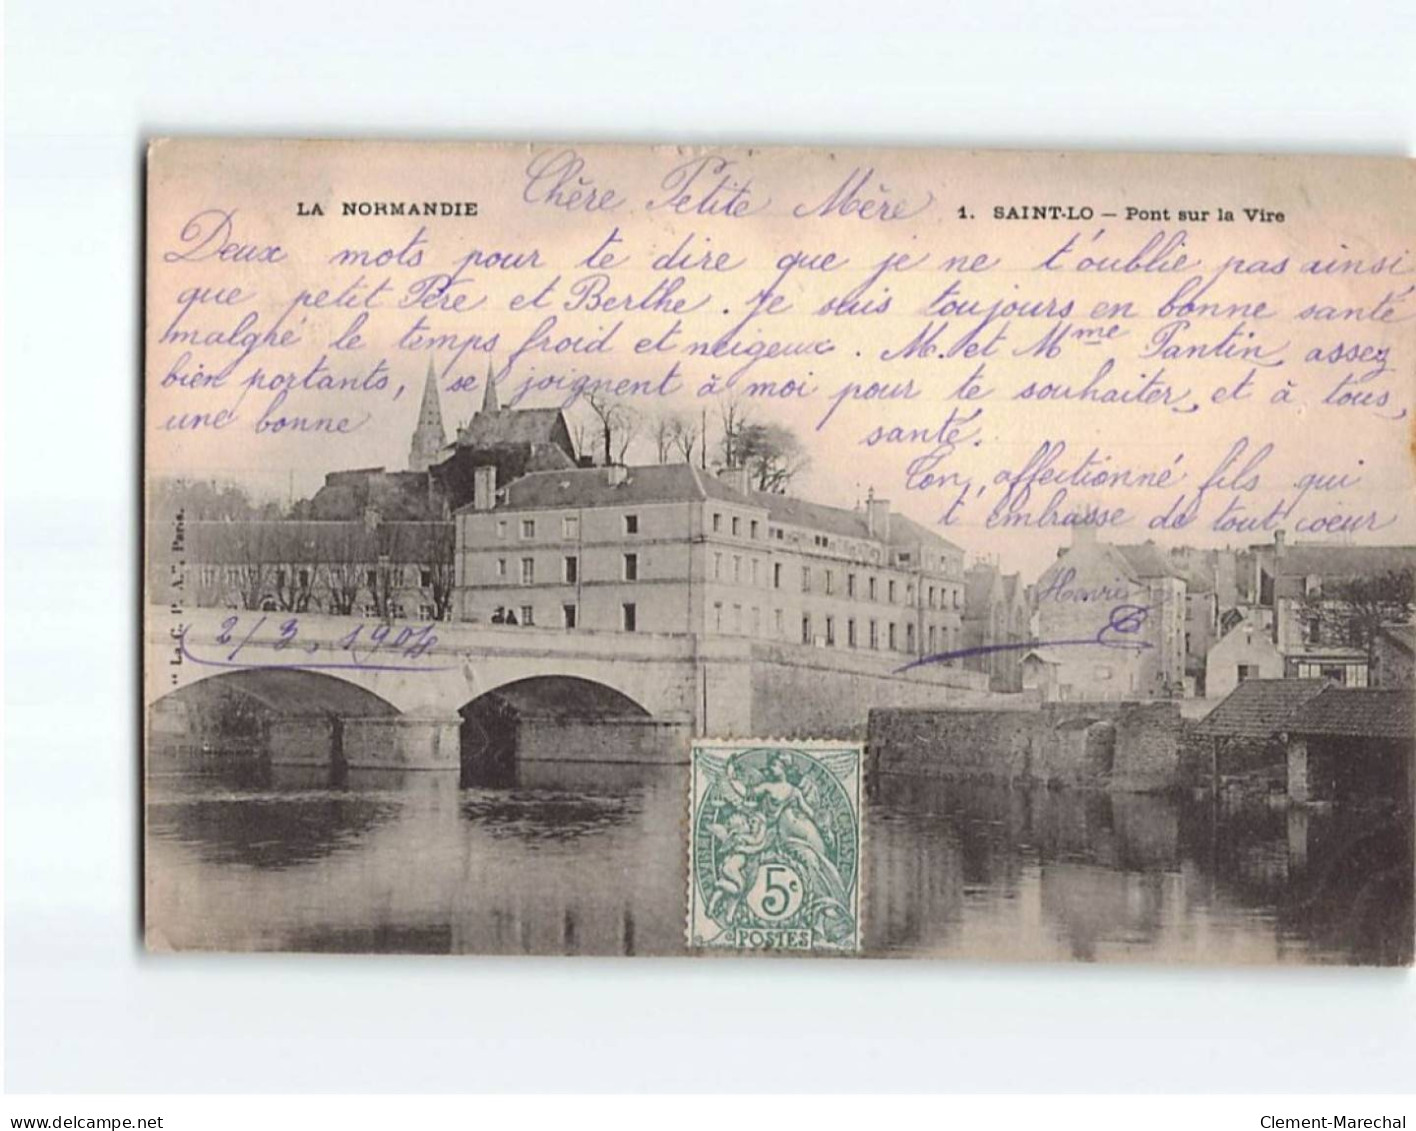 Chère Petite Mère
LA NORMANDIE
1. SAINT-LO — Pont sur la Vire
Deux mots pour te dire que je ne t'oublie pas ainsi
que petit Père et Berthe. Je suis toujours en bonne santé
malgré le temps froid et neigeux. M. et Mme Pantin, assez
bien portants, se joignent à moi pour te souhaiter, et à tous,
une bonne santé.
Ton affectionné fils qui
t'embrasse de tout coeur
Henri
2/3. 1904
"La C. P. A", Paris.
RÉPUBLIQUE FRANÇAISE
5c
POSTES
delcampe.net
Clement-Marechal